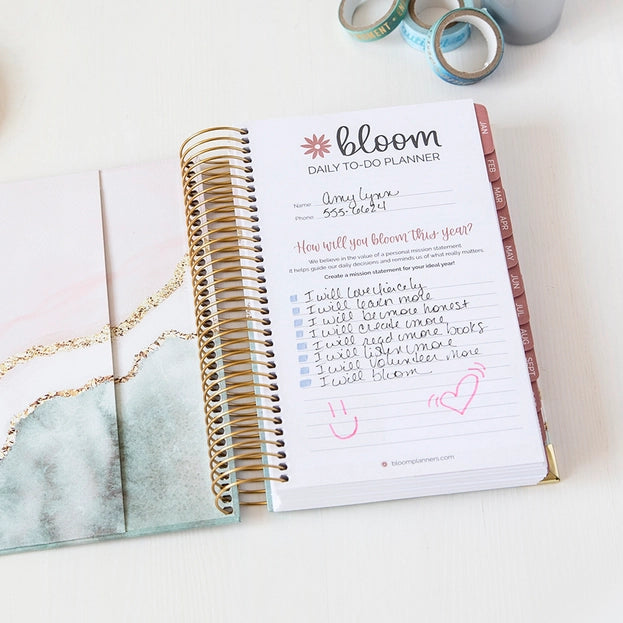 bloom
DAILY TO-DO PLANNER
Name: Amy Lynn
Phone: 555-6624
How will you bloom this year?
We believe in the value of a personal mission statement.
It helps guide our daily decisions and reminds us of what really matters.
Create a mission statement for your ideal year!
I will love fiercely
I will learn more
I will be more honest
I will create more
I will read more books
I will listen more
I will volunteer more
I will bloom
bloomplanners.com
JAN
FEB
MAR
APR
MAY
JUN
JUL
AUG
SEPT